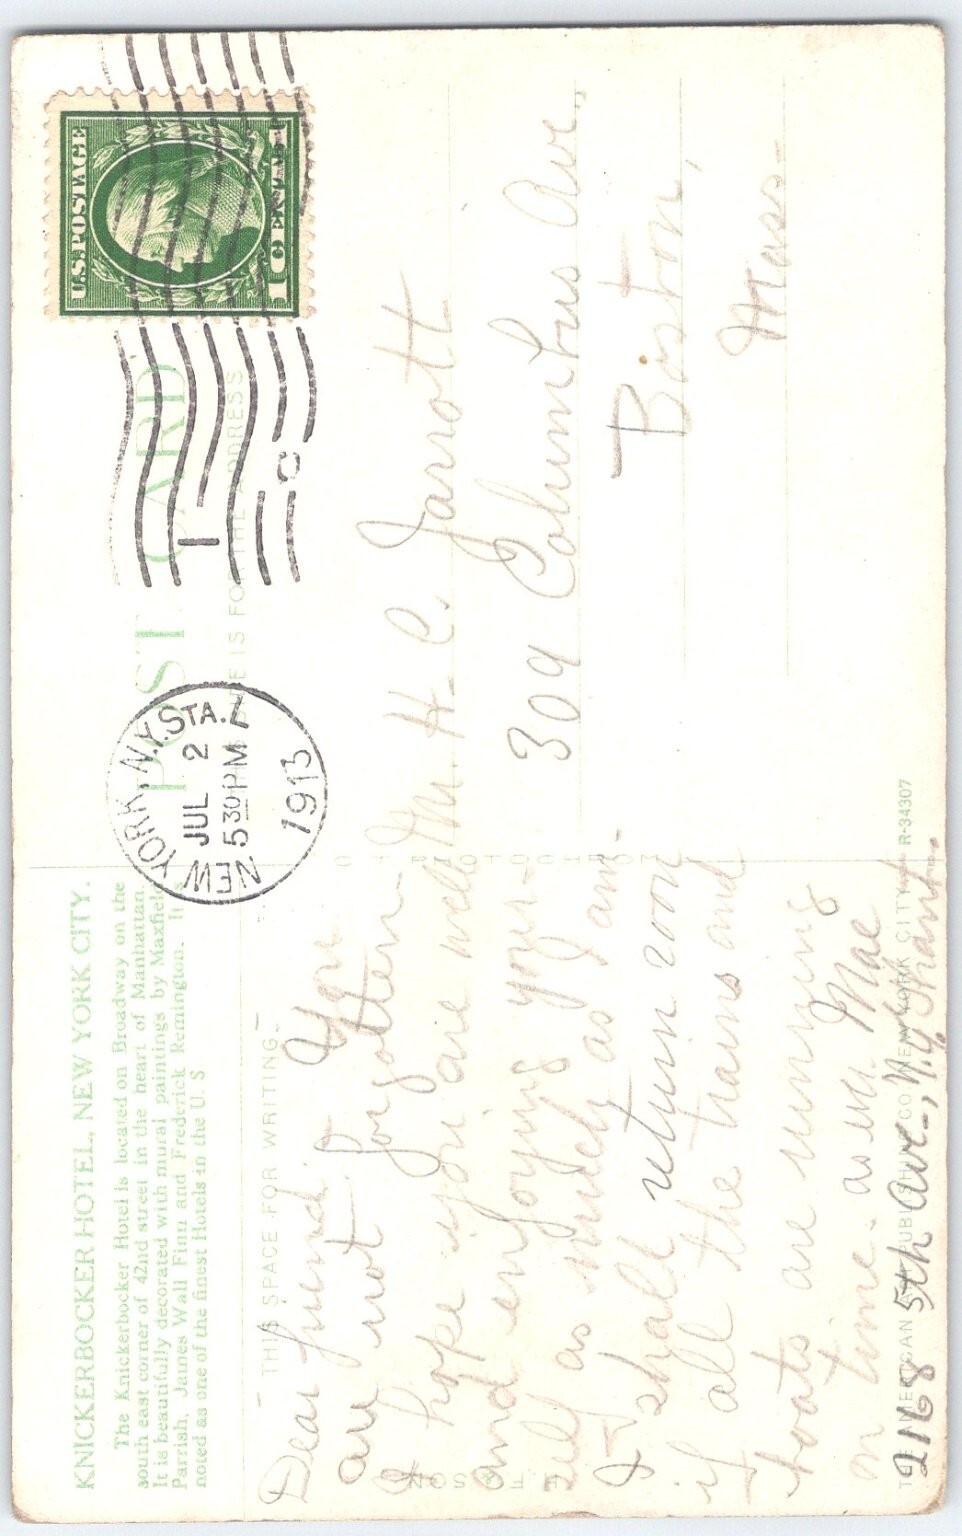 KNICKERBOCKER HOTEL, NEW YORK CITY.
The Knickerbocker Hotel is located on Broadway on the
south east corner of 42nd street in the heart of Manhattan.
It is beautifully decorated with mural paintings by Maxfield
Parrish, James Wall Finn and Frederick Remington. It is
noted as one of the finest Hotels in the U S
THIS SPACE FOR WRITING.
Dear friend. You
are not forgotten
I hope you are well
and enjoying your-
self as much as am-
I shall return soon
if all the trains and
boats are running
on time. as ever. Mae
2168 5th Ave., N.Y.
POST CARD
THIS SIDE IS FOR THE ADDRESS
U.S. POSTAGE
1 CENT 1
NEW YORK, N.Y. STA.
JUL 2
5 30 PM
1913
1 C
M. H. C. Jarrott
309 Columbus Ave.,
Boston,
Mass-
THE AMERICAN ART PUBLISHING CO. NEW YORK CITY
R-34307